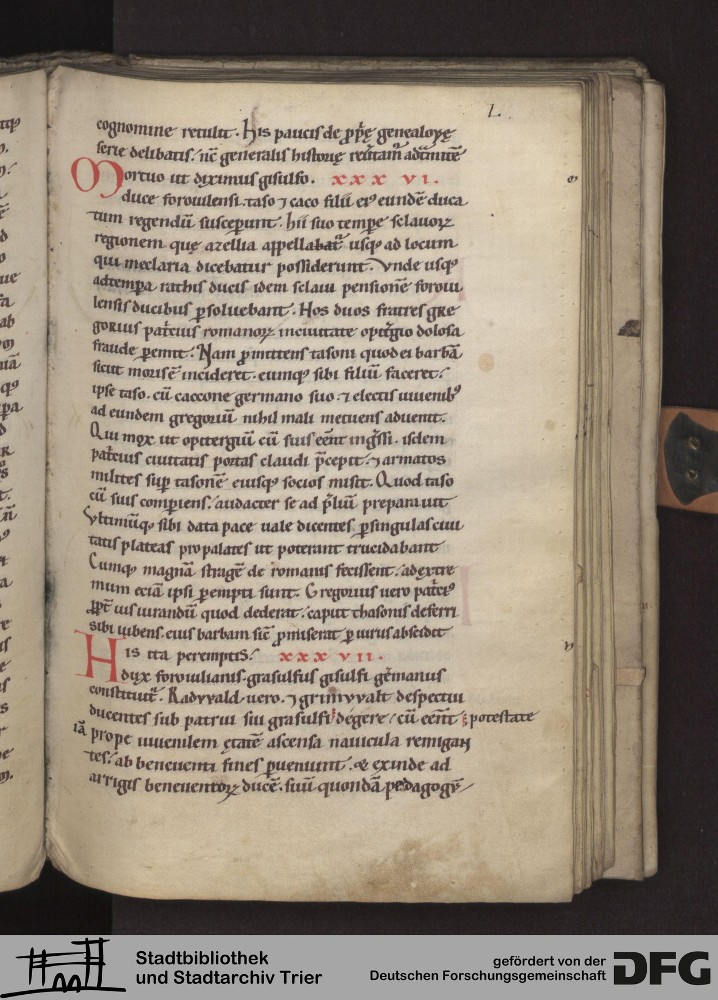 L.
cognomine retulit. His paucis de ꝓpͥę genealogię
serie delibatis. nc̄ generalis historię
Mortuo ut diximus gisulfo. xxx vi.
duce foroiulensi. taso ⁊ caco filii eiꝰ eundē duca
tum regendū susceperunt. hii suo tempͤe sclauoꝝ
regionem quę azellia appellabat᷑ usqꝫ ad locum
qui meclaria dicebatur possiderunt. Vnde usqꝫ
ad tempͣa rathis ducis idem sclaui pensionē foroiu
lensis ducibus ꝑsoluebant. Hos duos fratres gre
gorius pat͛cius romanoꝝ in ciuitate opit͛gio dolosa
fraude ꝑemit. Nam ꝓmittens tasoni quod ei barbā
sicut moris ē incideret. eumqꝫ sibi filiū faceret.
ipse taso. cū caccone germano suo. ⁊ electis iuuenibꝰ
ad eundem gregoriū nihil mali metuens aduenit.
Qui mox ut opitergiū cū suis eēnt ingͥssi. isdem
pat͛cius ciuitatis portas claudi p̄cepit. ⁊ armatos
milites suꝑ tasonē eiusqꝫ socios misit. Quod taso
cū suis comꝑiens. audacter se ad p̄liū preparauit
Vltimūqꝫ sibi data pace uale dicentes ꝑ singulas ciui
tatis plateas propalates ut poterant trucidabant
Cumqꝫ magnā stragē de romanis fecissent. ad extre
mum eciā ipsi ꝑempti sunt. Gregorius uero pat͛ciꝰ
ꝓpt͛ ius iurandū quod dederat. caput thasonis deferri
sibi iubens. eius barbam sic̄ ꝓmiserat ꝑ iurus abscidit
His ita peremptis. xxx vii.
dux foroiulianis. grasulfus gisulfi ge͛manus
constituit᷑. Radyvald uero. ⁊ grimyvalt despectui
ducentes sub patrui sui grasulfi degere. cū eēnt potestate
iā prope iuuenilem ętatē ascensa nauicula remigan
tes. ab beneuenti fines ꝑuenunt. & exinde ad
arrigis beneuentoꝝ ducē. suū quondā pedagogū
Stadtbibliothek
und Stadtarchiv Trier
gefördert von der
Deutschen Forschungsgemeinschaft
DFG